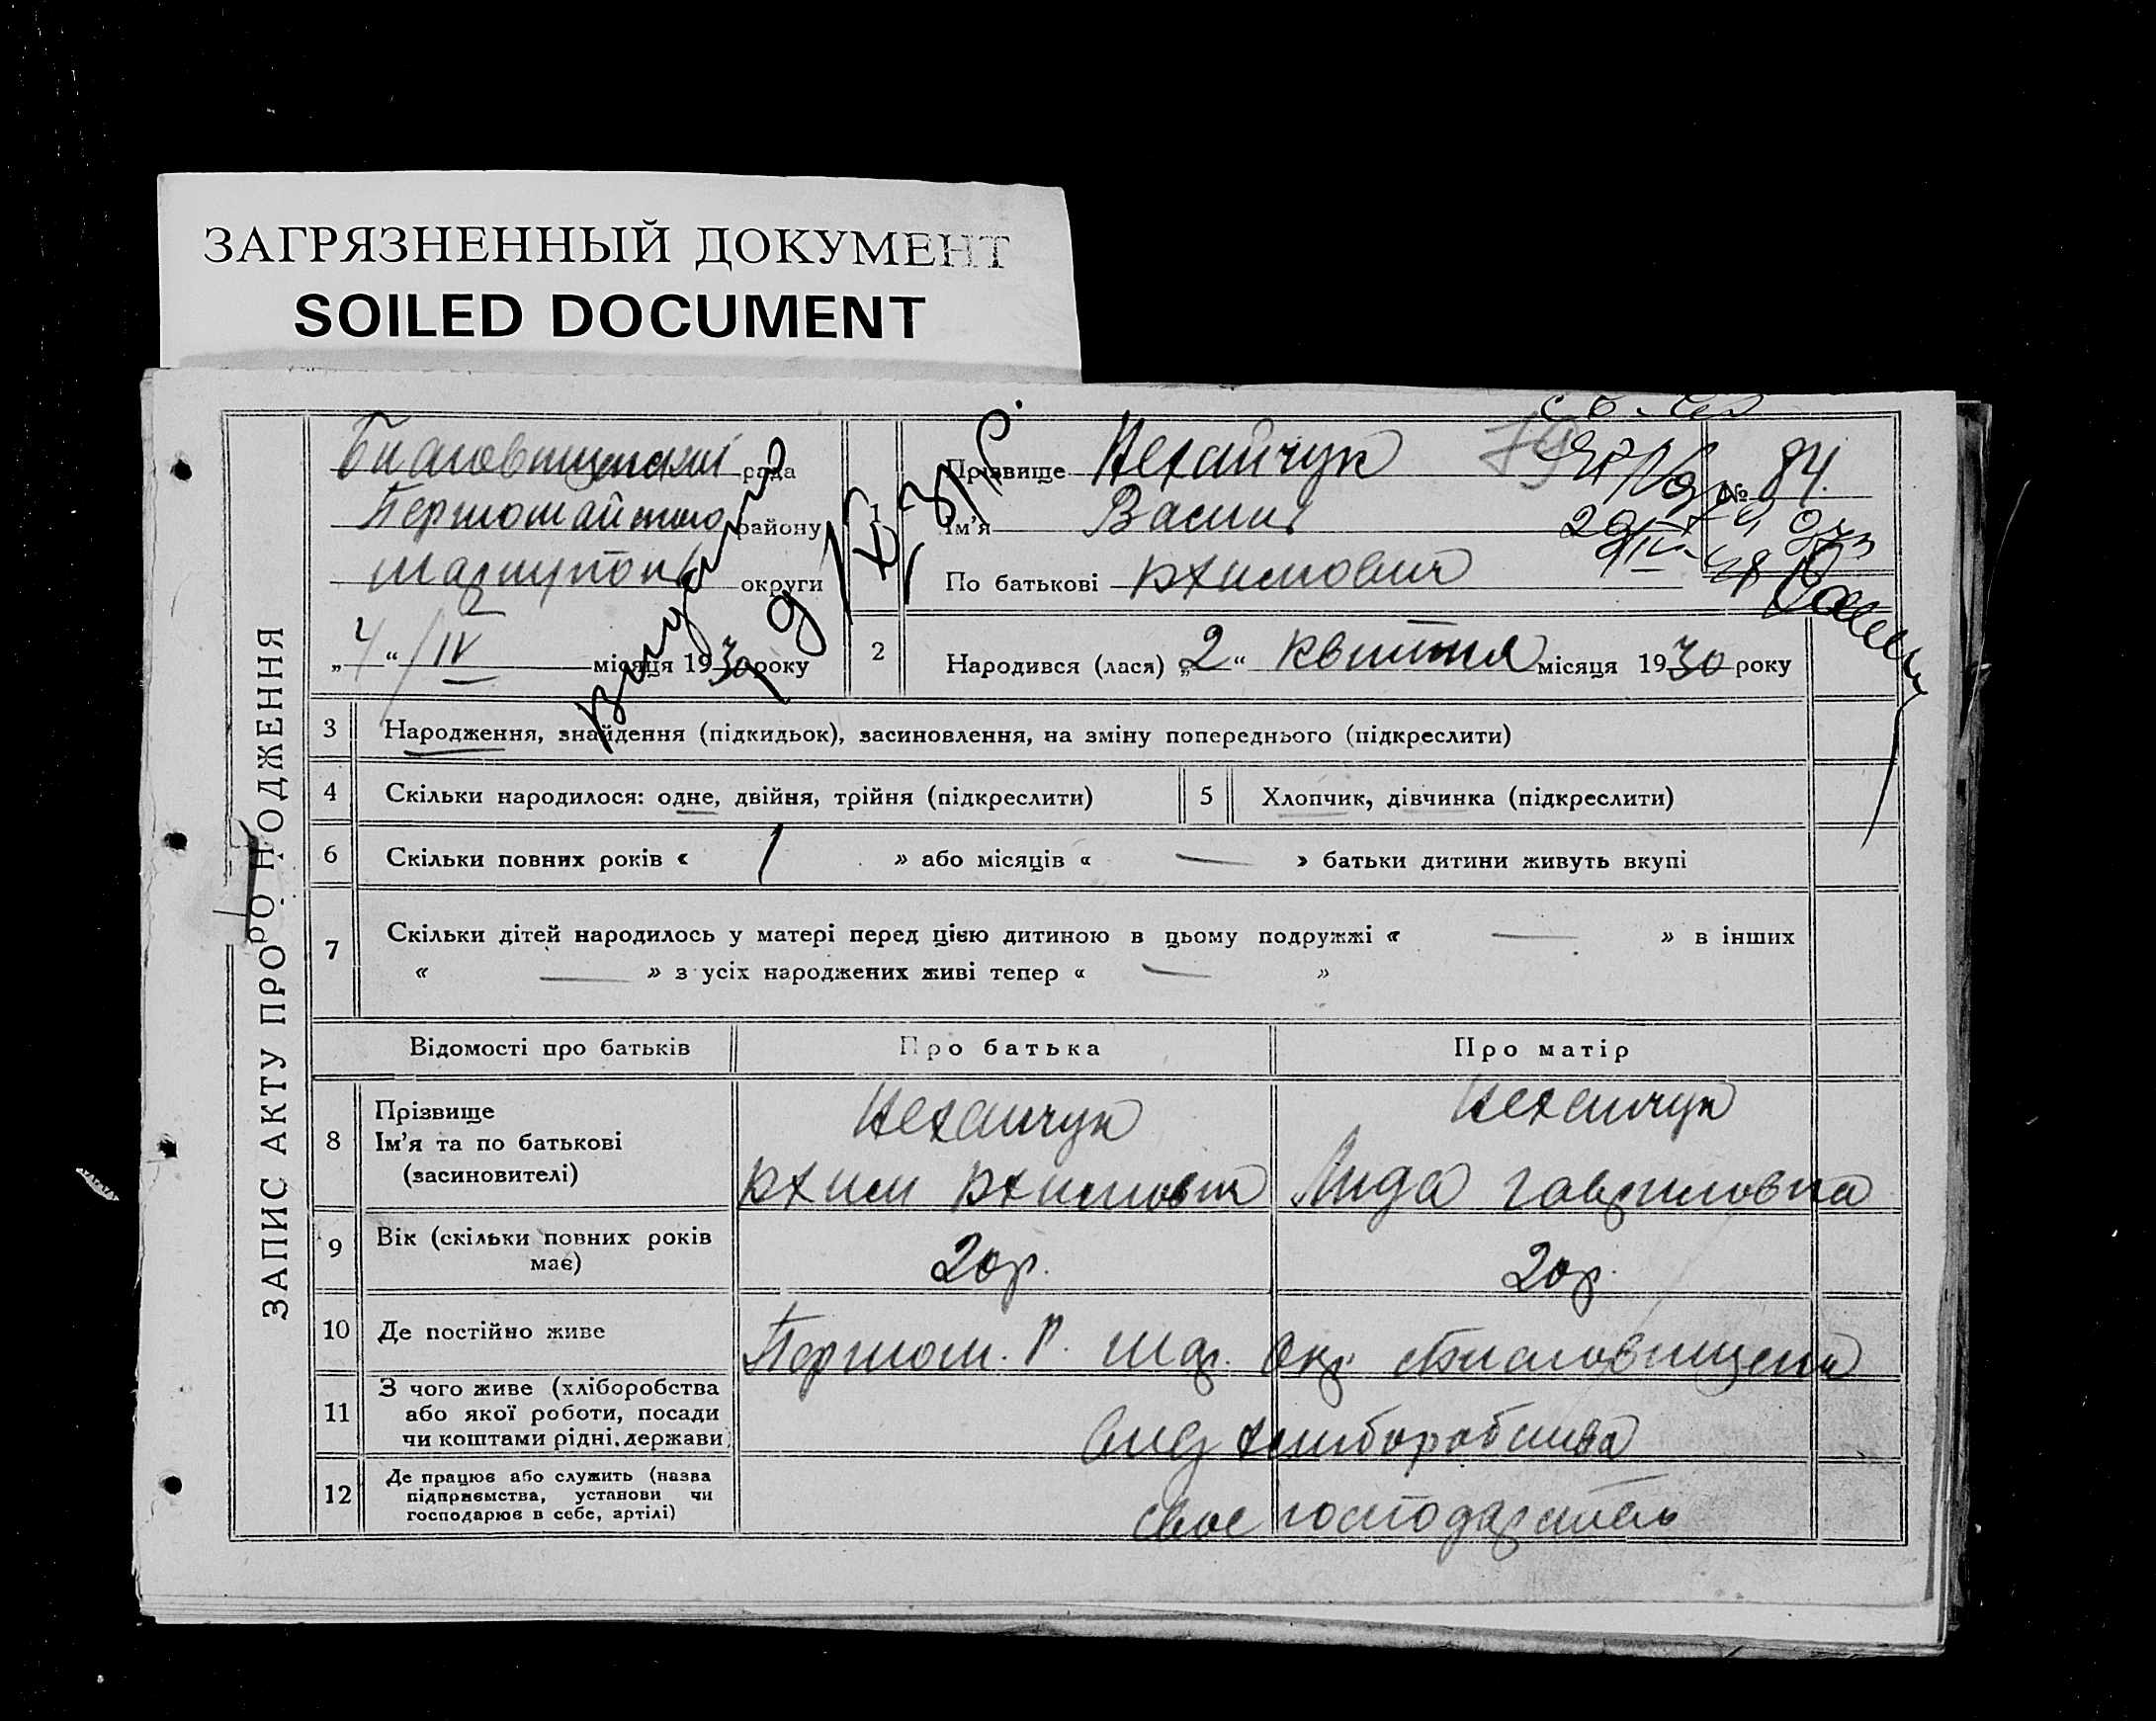 ЗАГРЯЗНЕННЫЙ ДОКУМЕНТ
SOILED DOCUMENT
ЗАПИС АКТУ ПРО НОДЖЕННЯ
рада
району
округи
„4“ IV місяця 1930 року
1
Прізвище Нехайчук
№ 84.
Ім'я Васил
По батькові Юхимович
2 Народився (лася) „2“ квітня місяця 1930 року
3 Народження, знайдення (підкидьок), засиновлення, на зміну попереднього (підкреслити)
4 Скільки народилося: одне, двійня, трійня (підкреслити) 5 Хлопчик, дівчинка (підкреслити)
6 Скільки повних років « 1 » або місяців « — » батьки дитини живуть вкупі
7 Скільки дітей народилось у матері перед цією дитиною в цьому подружжі « — » в інших
« — » з усіх народжених живі тепер « — »
Відомості про батьків Про батька Про матір
8 Прізвище Нехайчук Нехайчук
Ім'я та по батькові
(засиновителі) Юхим Юхимович Лида Гавриловна
9 Вік (скільки повних років
має) 20р. 20р.
10 Де постійно живе Першом. Р. Мар. Окр.
11 З чого живе (хліборобства
або якої роботи, посади
чи коштами рідні, держави) хліборобства
12 Де працює або служить (назва
підприємства, установи чи
господарює в себе, артілі) своє